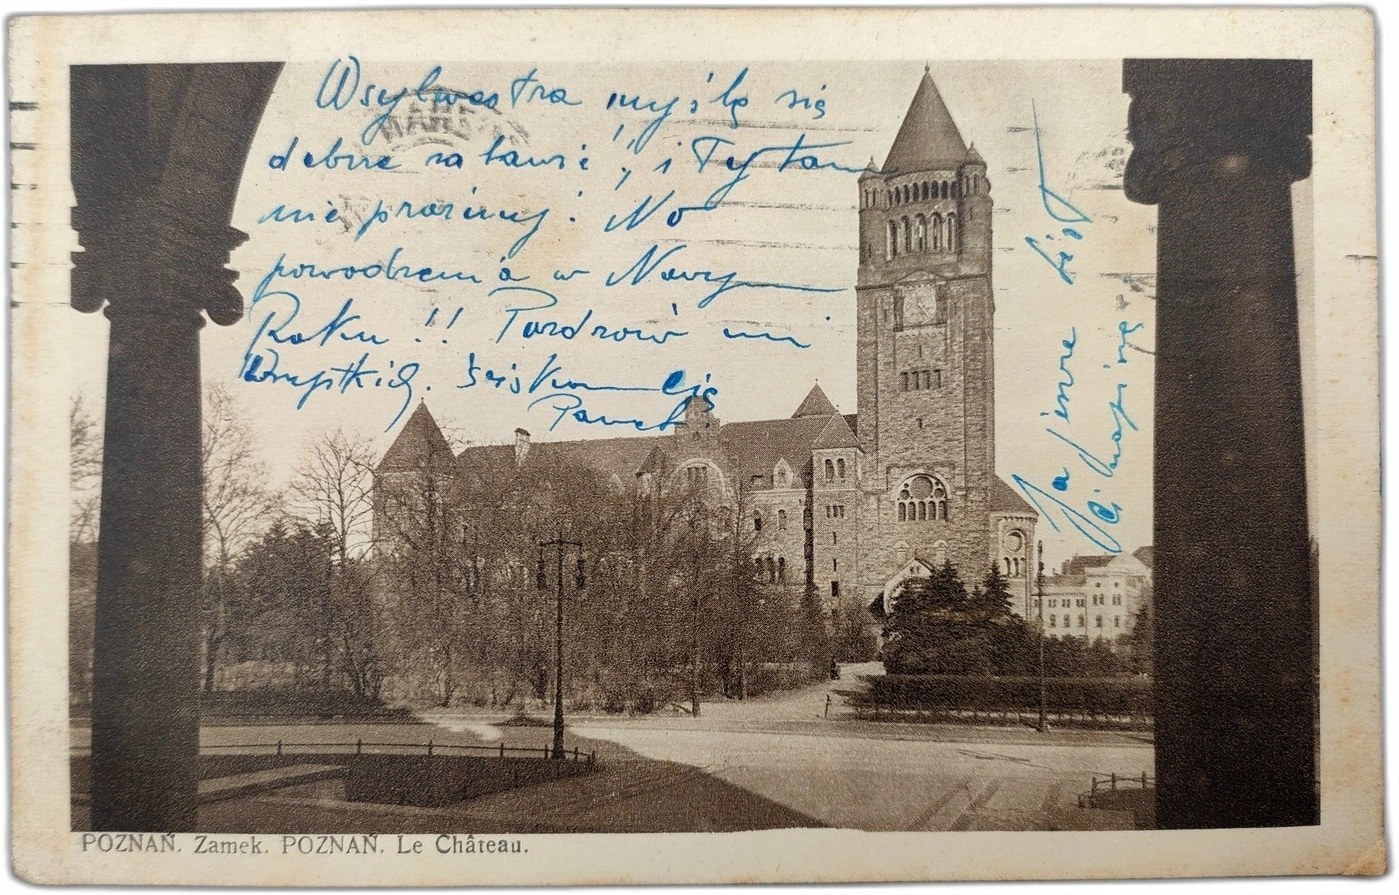 W sylwestra myślę się
dobrze zabawić, i Ty tam
nie próżnuj! No
powodzenia w Nowym
Roku!! Pozdrów mi
Wszystkich. Ściskam Cię
Paweł
Ja jeszcze list
Ci napiszę
POZNAŃ. Zamek. POZNAŃ. Le Château.